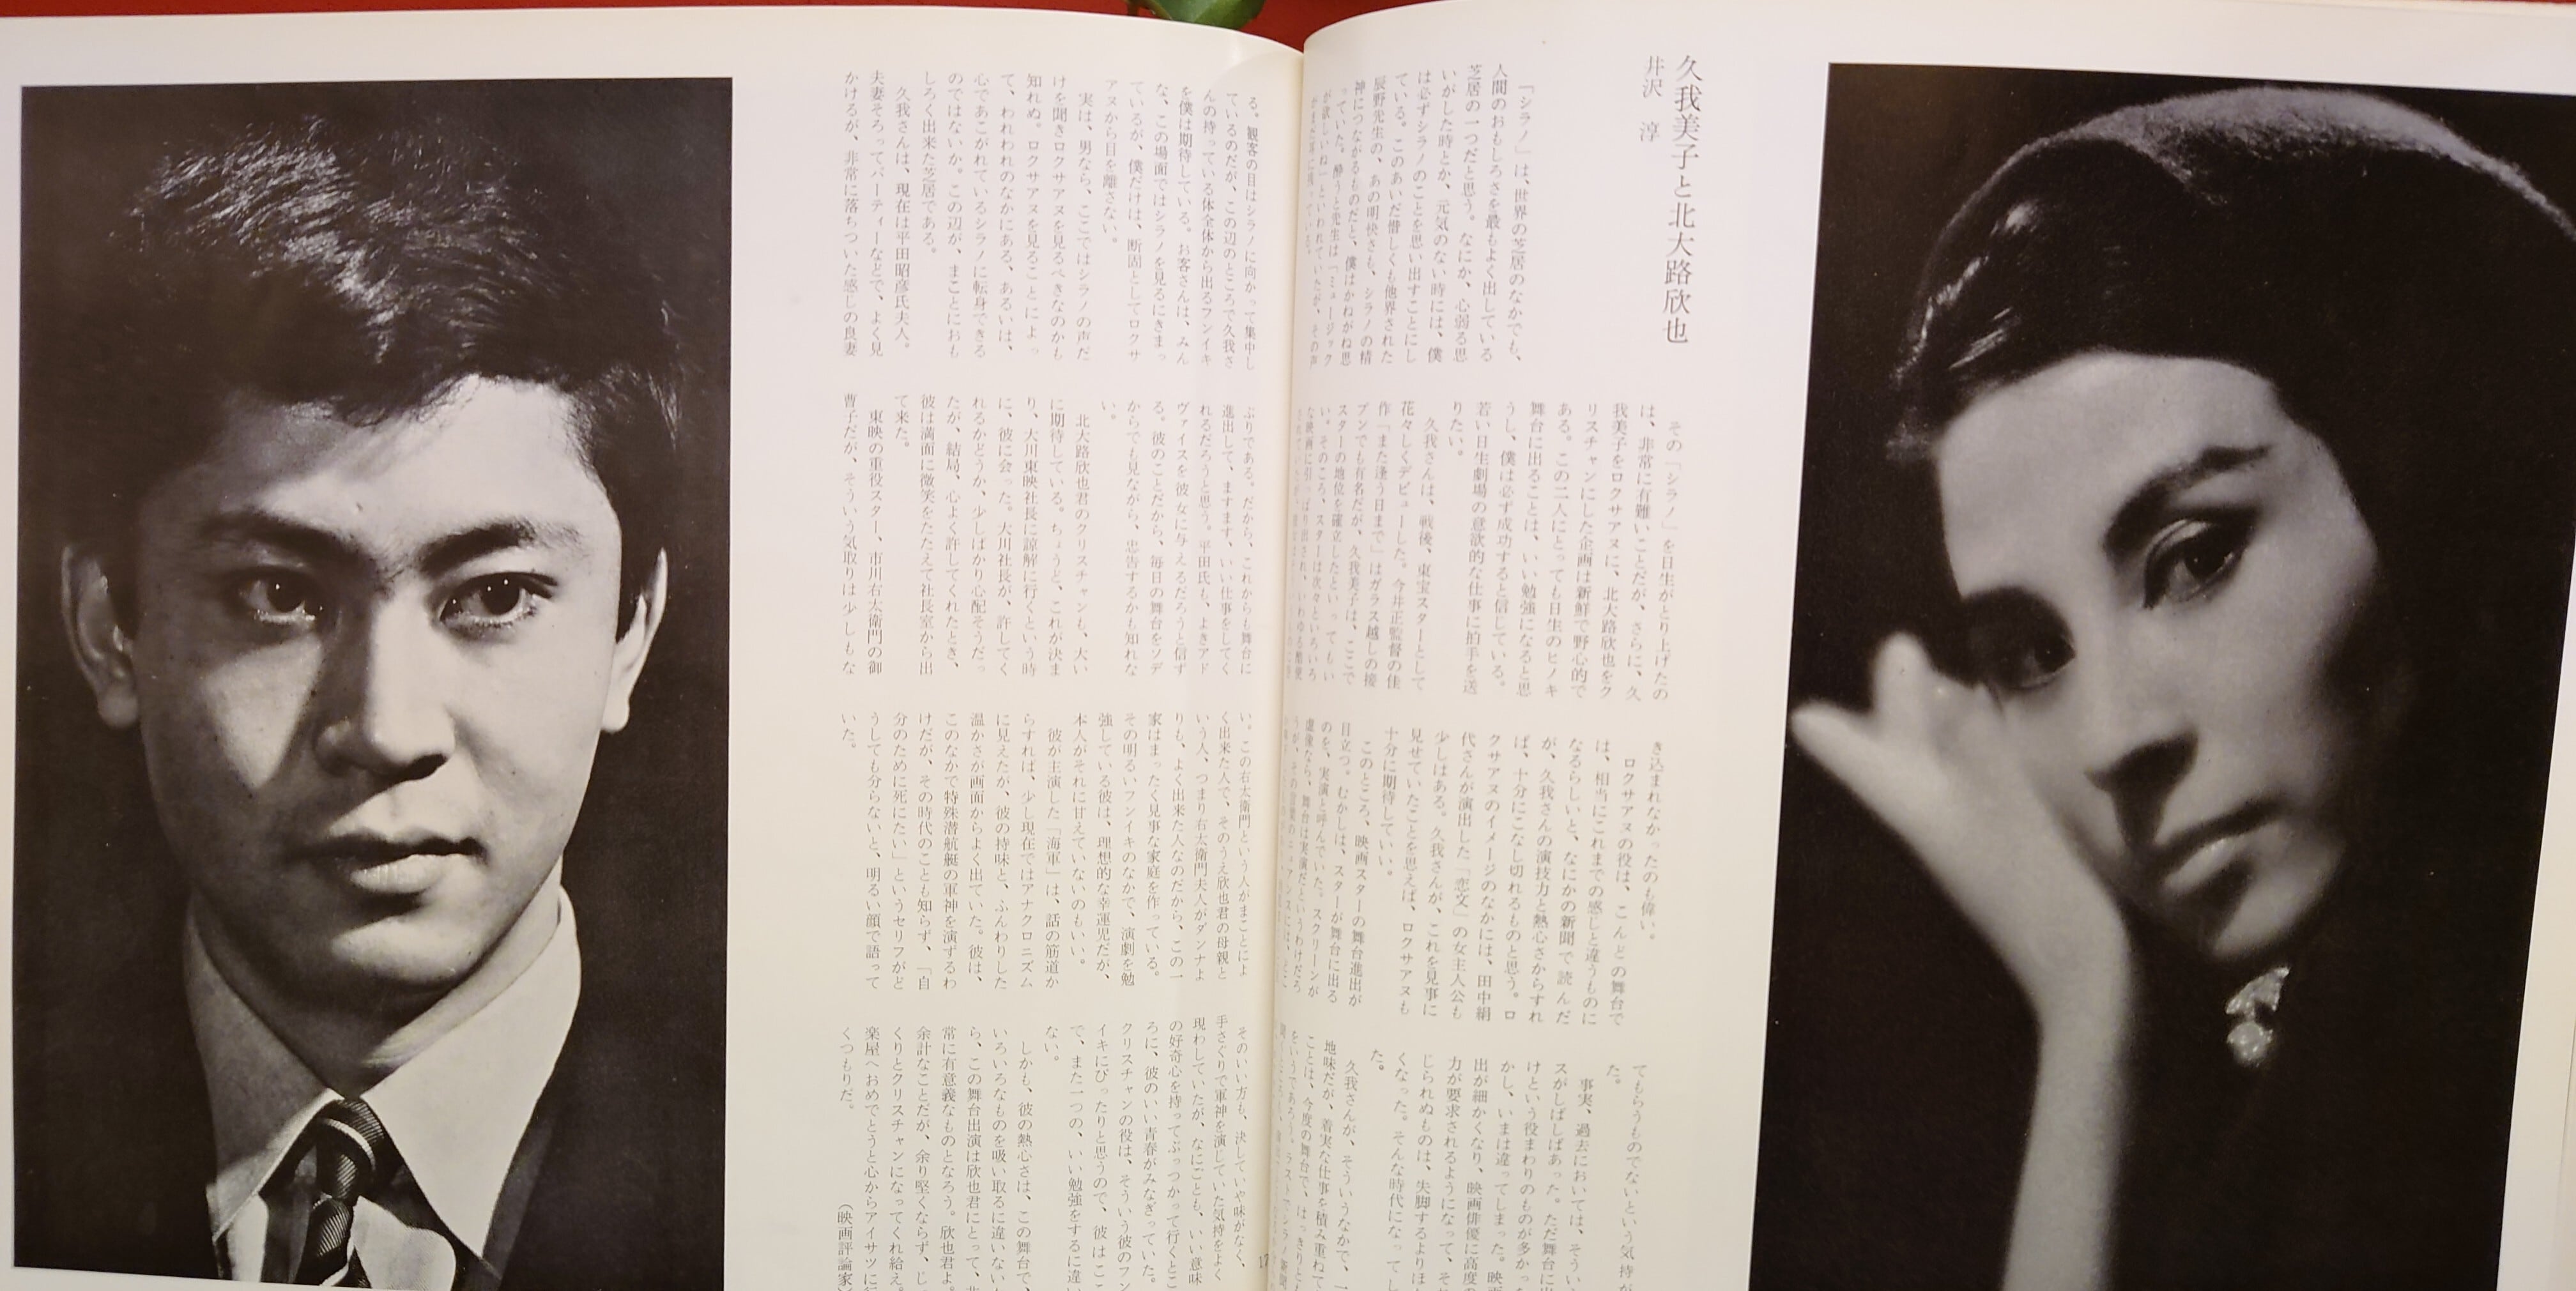 久我美子と北大路欣也
井沢 淳
「シラノ」は、世界の芝居のなかでも、
人間のおもしろさを最もよく出している
芝居の一つだと思う。なにか、心弱る思
いがした時とか、元気のない時には、僕
は必ずシラノのことを思い出すことにし
ている。このあいだ惜しくも他界された
辰野先生の、あの明快さも、シラノの精
神につながるものだと、僕はかねがね思
っていた。酔うと先生は「ミュージック
が欲しいね」といわれていたが、その声
がまだ耳に残っている。
その「シラノ」を日生がとり上げたの
は、非常に有難いことだが、さらに、久
我美子をロクサアヌに、北大路欣也をク
リスチャンにした企画は新鮮で野心的で
ある。この二人にとっても日生のヒノキ
舞台に出ることは、いい勉強になると思
うし、僕は必ず成功すると信じている。
若い日生劇場の意欲的な仕事に拍手を送
りたい。
久我さんは、戦後、東宝スターとして
花々しくデビューした。今井正監督の佳
作「また逢う日まで」はガラス越しの接
プンでも有名だが、久我美子は、ここで
スターの地位を確立したといってもい
い。そのころ、スターは次々といろいろ
な映画に引っぱり出され、いわゆる酷使
き込まれなかったのも偉い。
ロクサアヌの役は、こんどの舞台で
は、相当にこれまでの感じと違うものに
なるらしいと、なにかの新聞で読んだ
が、久我さんの演技力と熱心さからすれ
ば、十分にこなし切れるものと思う。ロ
クサアヌのイメージのなかには、田中絹
代さんが演出した「恋文」の女主人公も
少しはある。久我さんが、これを見事に
見せていたことを思えば、ロクサアヌも
十分に期待していい。
このところ、映画スターの舞台進出が
目立つ。むかしは、スターが舞台に出る
のを、実演と呼んでいた。スクリーンが
虚像なら、舞台は実演だというわけだろ
てもらうものでないという気持が
た。
事実、過去においては、そうい
スがしばしばあった。ただ舞台に出
けという役まわりのものが多かっ
かし、いまは違ってしまった。映画
出が細かくなり、映画俳優に高度の
力が要求されるようになって、そ
じられぬものは、失脚するよりほ
くなった。そんな時代になってし
た。
久我さんが、そういうなかで、一
地味だが、着実な仕事を積み重ねて
ことは、今度の舞台で、はっきりと
る。観客の目はシラノに向かって集中し
ているのだが、この辺のところで久我さ
んの持っている体全体から出るフンイキ
を僕は期待している。お客さんは、みん
な、この場面ではシラノを見るにきまっ
ているが、僕だけは、断固としてロクサ
アヌから目を離さない。
実は、男なら、ここではシラノの声だ
けを聞きロクサアヌを見るべきなのかも
知れぬ。ロクサアヌを見ることによっ
て、われわれのなかにある、あるいは、
心であこがれているシラノに転身できる
のではないか。この辺が、まことにおも
しろく出来た芝居である。
久我さんは、現在は平田昭彦氏夫人。
夫妻そろってパーティーなどで、よく見
かけるが、非常に落ちついた感じの良妻
ぶりである。だから、これからも舞台に
進出して、ますます、いい仕事をしてく
れるだろうと思う。平田氏も、よきアド
ヴァイスを彼女に与えるだろうと信ず
る。彼のことだから、毎日の舞台をソデ
からでも見ながら、忠告するかも知れな
い。
北大路欣也君のクリスチャンも、大い
に期待している。ちょうど、これが決ま
り、大川東映社長に諒解に行くという時
に、彼に会った。大川社長が、許してく
れるかどうか、少しばかり心配そうだっ
たが、結局、心よく許してくれたとき、
彼は満面に微笑をたたえて社長室から出
て来た。
東映の重役スター、市川右太衛門の御
曹子だが、そういう気取りは少しもな
い。この右太衛門という人がまことによ
く出来た人で、そのうえ欣也君の母親と
いう人、つまり右太衛門夫人がダンナよ
りも、よく出来た人なのだから、この一
家はまったく見事な家庭を作っている。
その明るいフンイキのなかで、演劇を勉
強している彼は、理想的な幸運児だが、
本人がそれに甘えていないのもいい。
彼が主演した「海軍」は、話の筋道か
らすれば、少し現在ではアナクロニズム
に見えたが、彼の持味と、ふんわりした
温かさが画面からよく出ていた。彼は、
このなかで特殊潜航艇の軍神を演ずるわ
けだが、その時代のことも知らず、「自
分のために死にたい」というセリフがど
うしても分らないと、明るい顔で語って
いた。
そのいい方も、決していや味がなく、
手さぐりで軍神を演していた気持をよく
現わしていたが、なにごとも、いい意味
の好奇心を持ってぶっつかって行くとこ
ろに、彼のいい青春がみなぎっていた。
クリスチャンの役は、そういう彼のフン
イキにぴったりと思うので、彼はここ
で、また一つの、いい勉強をするに違い
ない。
しかも、彼の熱心さは、この舞台で、
いろいろなものを吸い取るに違いないし
ら、この舞台出演は欣也君にとって、非
常に有意義なものとなろう。欣也君よ。
余計なことだが、余り堅くならず、じ
くりとクリスチャンになってくれ給え。
楽屋へおめでとうと心からアイサツに行
くつもりだ。
（映画評論家）
17